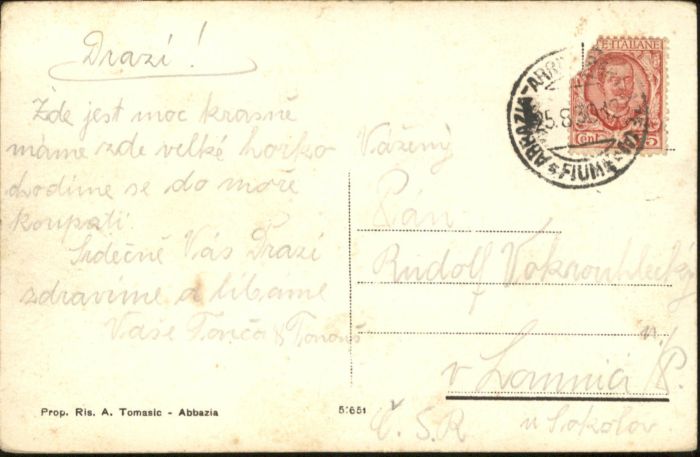 Drazí!
Zde jest moc krasně
máme zde velké horko
hodíme se do moře
koupati.
Srdečně Vás Drazí
zdravíme a líbame
Vaše Tonča &
Vážený
Pán
Rudolf Vokrouhlecky
v Lomnici n./P.
Č. S. R. u Sokolov
TE ITALIANE
ABBAZIA
25.8.30
FIUME
Prop. Ris. A. Tomasic - Abbazia
5:651